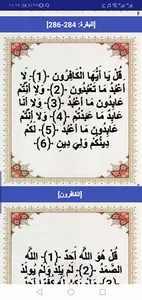 [البقرة: 284-286]
قُلْ يَا أَيُّهَا الْكَافِرُونَ -{1}- لَا
أَعْبُدُ مَا تَعْبُدُونَ -{2}- وَلَا أَنْتُمْ
عَابِدُونَ مَا أَعْبُدُ -{3}- وَلَا أَنَا
عَابِدٌ مَا عَبَدْتُمْ -{4}- وَلَا أَنْتُمْ
عَابِدُونَ مَا أَعْبُدُ -{5}- لَكُمْ
دِينُكُمْ وَلِيَ دِينِ -{6}-
[الكافرون]
قُلْ هُوَ اللَّهُ أَحَدٌ -{1}- اللَّهُ
الصَّمَدُ -{2}- لَمْ يَلِدْ وَلَمْ يُولَدْ